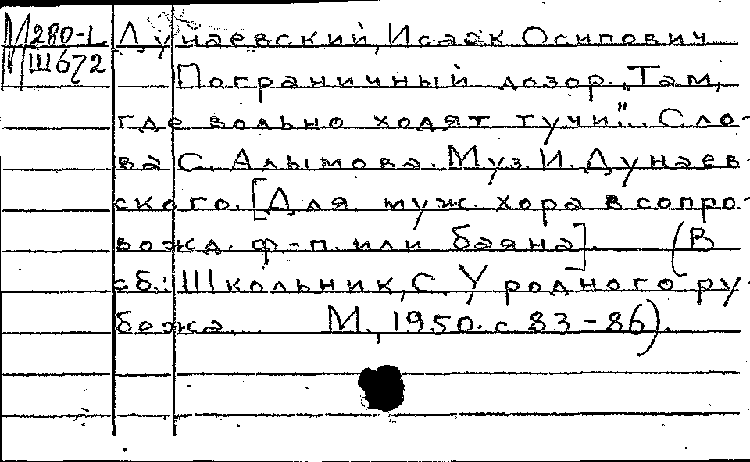 М280-1 Дунаевский, Исаак Осипович
Ш67/2 Пограничный дозор. „Там,
где вольно ходят тучи"... Сло-
ва С. Алымова. Муз. И. Дунаев-
ского. [Для муж. хора в сопро-
вожд. ф-п. или баяна]. (В
сб.: Школьник, С. У родного ру-
бежа... М., 1950. с 83-86).